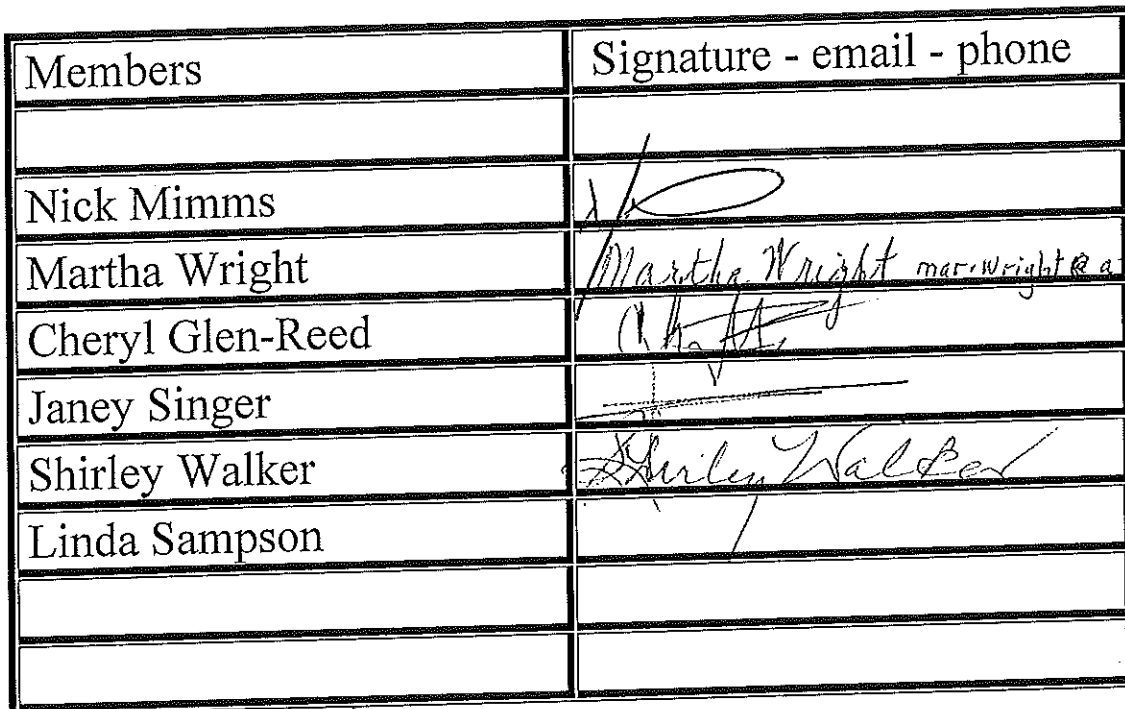 Members Signature - email - phone
Nick Mimms
Martha Wright Martha Wright mar.wright@a
Cheryl Glen-Reed
Janey Singer
Shirley Walker Shirley Walker
Linda Sampson